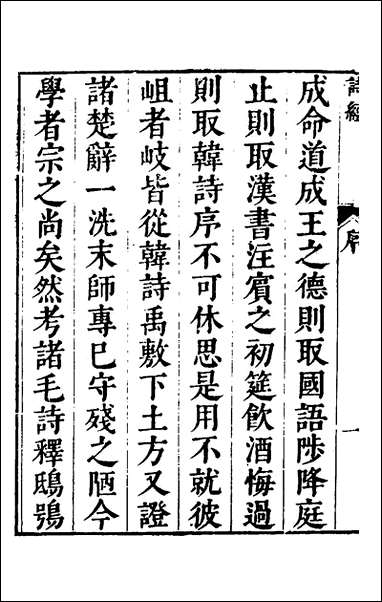 詩經
序
一
成命道成王之德則取國語陟降庭
止則取漢書注賓之初筵飲酒悔過
則取韓詩序不可休思是用不就彼
岨者岐皆從韓詩禹敷下土方又證
諸楚辭一洗末師專已守殘之陋今
學者宗之尚矣然考諸毛詩釋鴟鴞